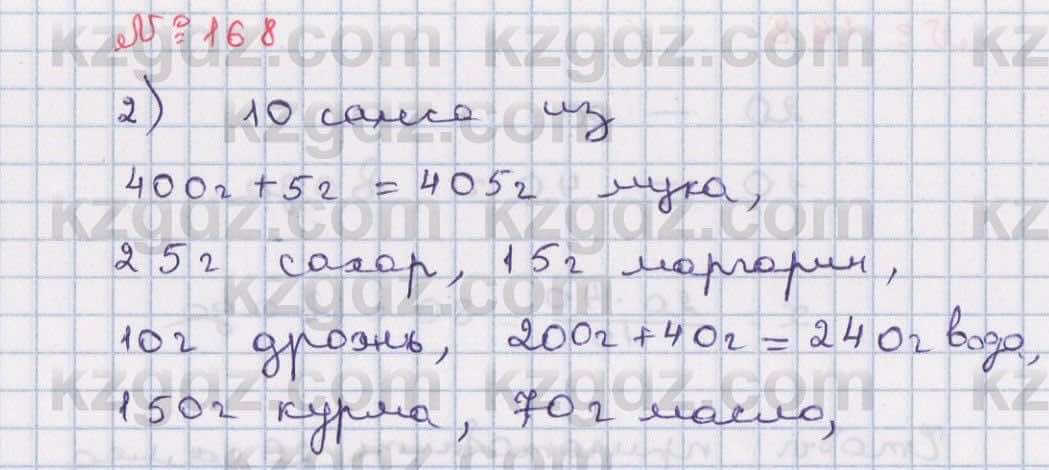 №168
2) 10 самса из
400г + 5г = 405г мука,
25г сахар, 15г маргарин,
10г дрожжь, 200г + 40г = 240г вода,
150г курма, 70г масло,